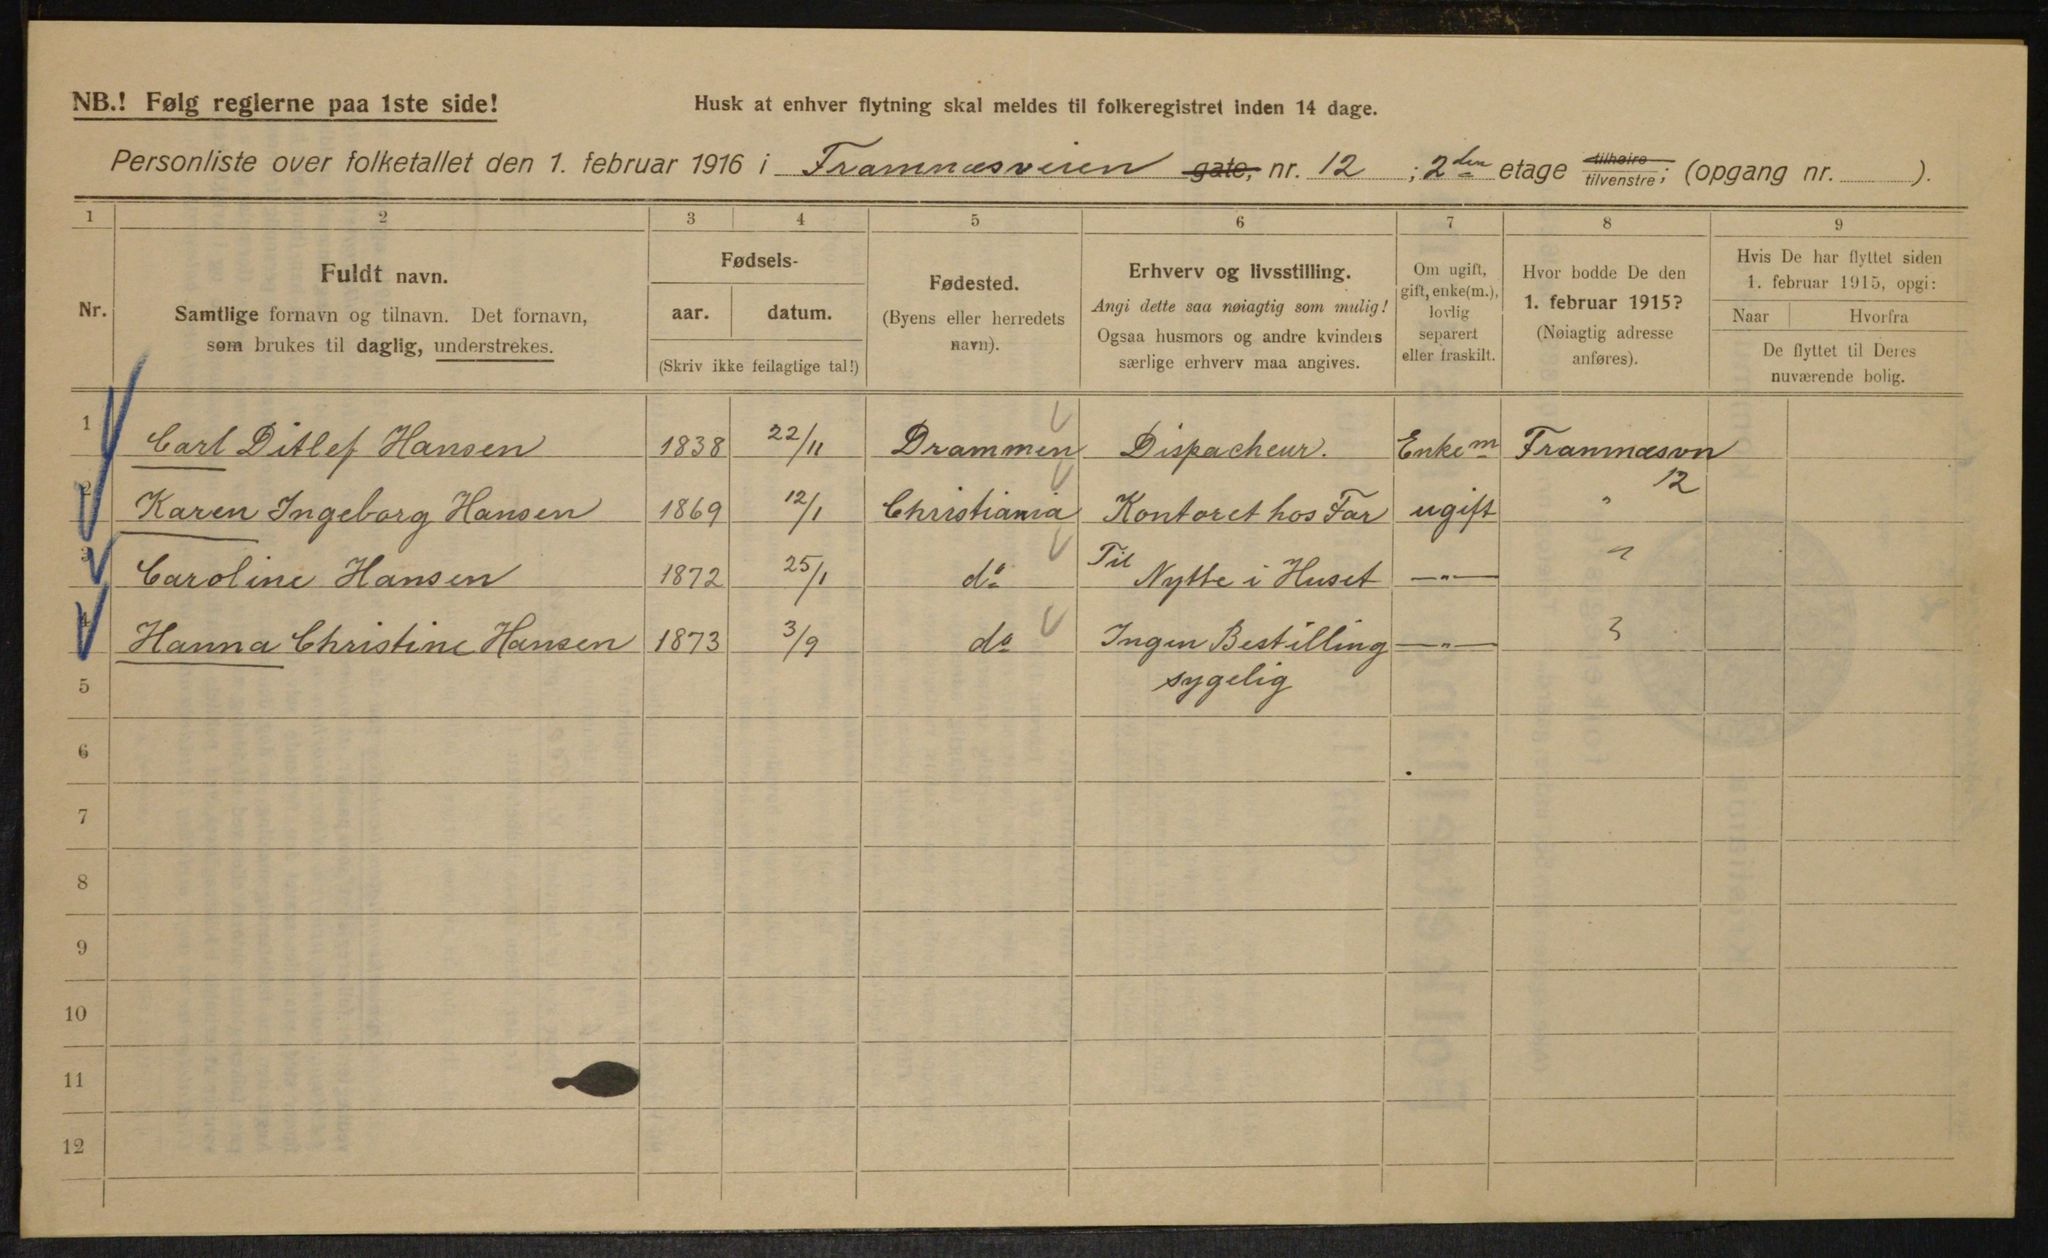 NB.! Følg reglerne paa 1ste side!
Husk at enhver flytning skal meldes til folkeregistret inden 14 dage.
Personliste over folketallet den 1. februar 1916 i Framnæsveien gate, nr. 12 ; 2den etage tilhøire tilvenstre; (opgang nr. ).
1 2 3 4 5 6 7 8 9
Nr.
Fuldt navn.
Samtlige fornavn og tilnavn. Det fornavn,
som brukes til daglig, understrekes.
Fødsels-
aar. datum.
(Skriv ikke feilagtige tal!)
Fødested.
(Byens eller herredets
navn).
Erhverv og livsstilling.
Angi dette saa nøiagtig som mulig!
Ogsaa husmors og andre kvinders
særlige erhverv maa angives.
Om ugift,
gift, enke(m.),
lovlig
separert
eller fraskilt.
Hvor bodde De den
1. februar 1915?
(Nøiagtig adresse
anføres).
Hvis De har flyttet siden
1. februar 1915, opgi:
Naar Hvorfra
De flyttet til Deres
nuværende bolig.
1 Carl Ditlef Hansen 1838 22/11 Drammen Dispacheur. Enkem Framnæsvn
12
2 Karen Ingeborg Hansen 1869 12/1 Christiania Kontoret hos Far ugift "
3 Caroline Hansen 1872 25/1 do Til Nytte i Huset —"— "
4 Hanna Christine Hansen 1873 3/9 do Ingen Bestilling —"—
sygelig
5
6
7
8
9
10
11
12